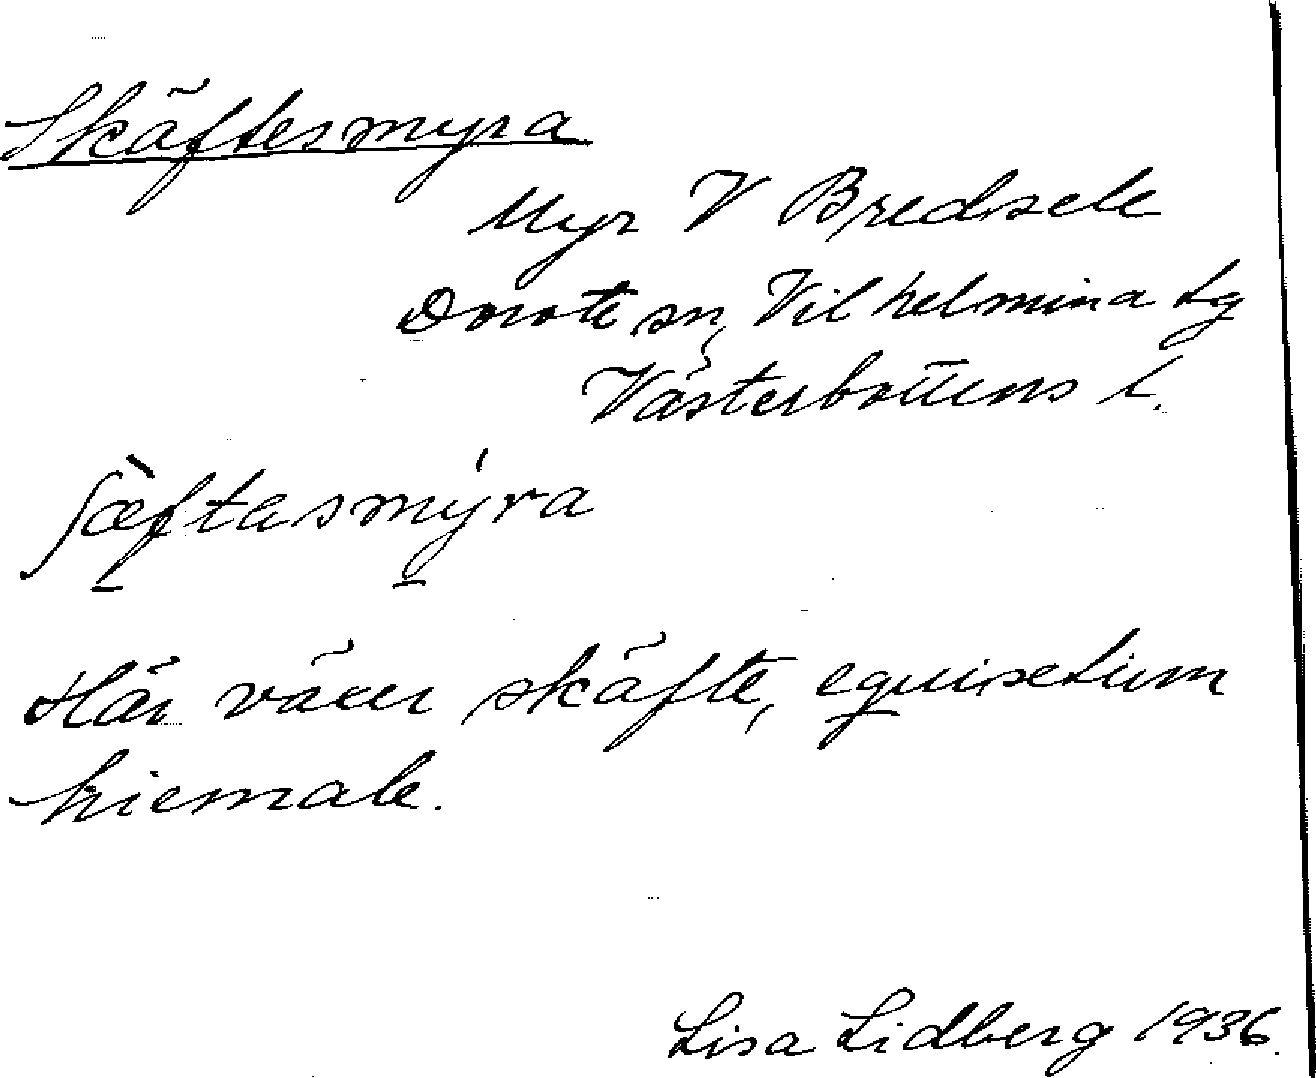 Skäftesmyra
Myr V Bredsele
Dorote sn, Vilhelmina tg
Västerbottens l.
ʃæ̀ftasmýra
Här växer skäfte, equisetum
hiemale.
Lisa Lidberg 1936.